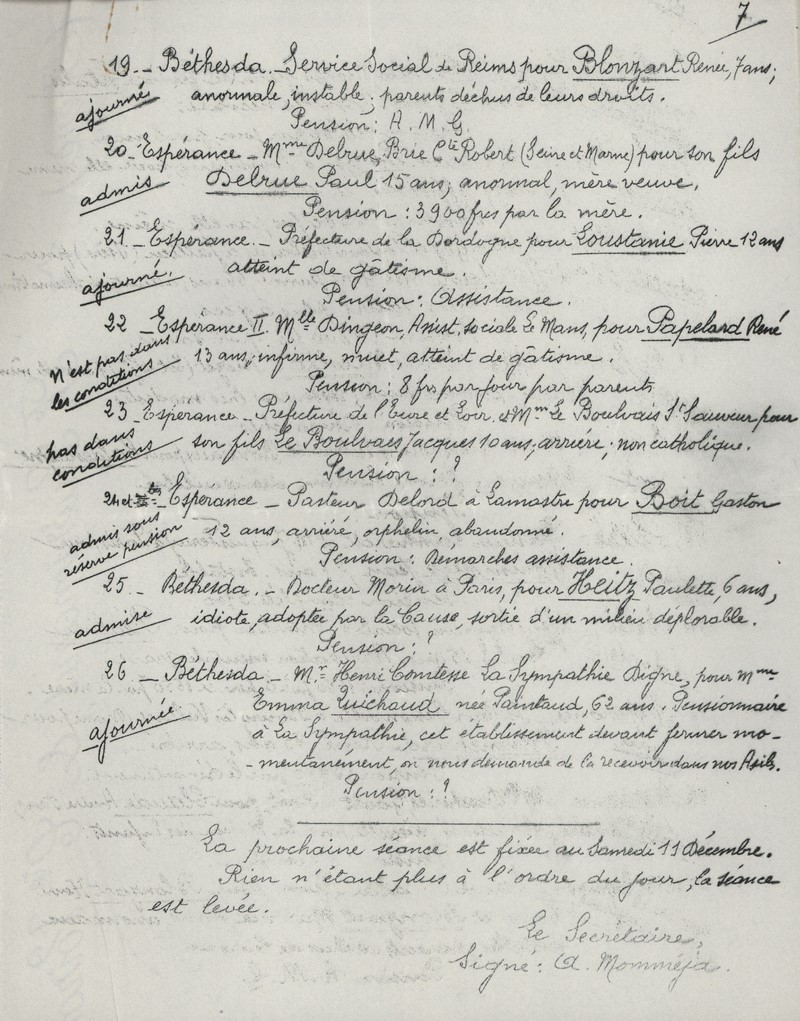 7
19 _ Béthesda _ Service Social de Reims pour Blonzart Renée, 7 ans;
ajourné
anormale, instable; parents déchus de leurs droits.
Pension: A. M. G.
20 _ Espérance _ Mme Delrue, Brie Cte Robert (Seine et Marne) pour son fils
admis
Delrue Paul 15 ans; anormal, mère veuve.
Pension: 3900 frs par la mère.
21 _ Espérance. _ Préfecture de la Dordogne pour Loustanie Pierre 12 ans
ajourné.
atteint de gâtisme.
Pension: Assistance.
22 _ Espérance II. Mlle Dingeon, Assist. sociale Le Mans, pour Papelard René
N'est pas dans
les conditions.
13 ans, infirme, muet, atteint de gâtisme.
Pension: 8 frs par jour par parents
23 _ Espérance _ Préfecture de l'Eure et Loir, et Mme Le Boulvais St Sauveur pour
pas dans
conditions
son fils Le Boulvais Jacques 10 ans; arriéré; non catholique.
Pension: ?
24 et Espérance _ Pasteur Delord à Lamastre pour Boit Gaston
admis sous
réserve pension
12 ans, arriéré, orphelin, abandonné.
Pension: Démarches assistance.
25 _ Béthesda. _ Docteur Morin à Paris, pour Heitz Paulette, 6 ans,
admise
idiote, adoptée par la Cause, sortie d'un milieu déplorable.
Pension: ?
26 _ Béthesda _ Mr. Henri Comtesse La Sympathie Digne, pour Mme
Emma Quichaud née Paintaud, 62 ans. Pensionnaire
ajournée
à La Sympathie, cet établissement devant fermer mo-
-mentanément, on nous demande de la recevoir dans nos Asiles.
Pension: ?
La prochaine séance est fixée au Samedi 11 Décembre.
Rien n'étant plus à l'ordre du jour, la séance
est levée.
Le Secrétaire,
Signé: A. Momméja.